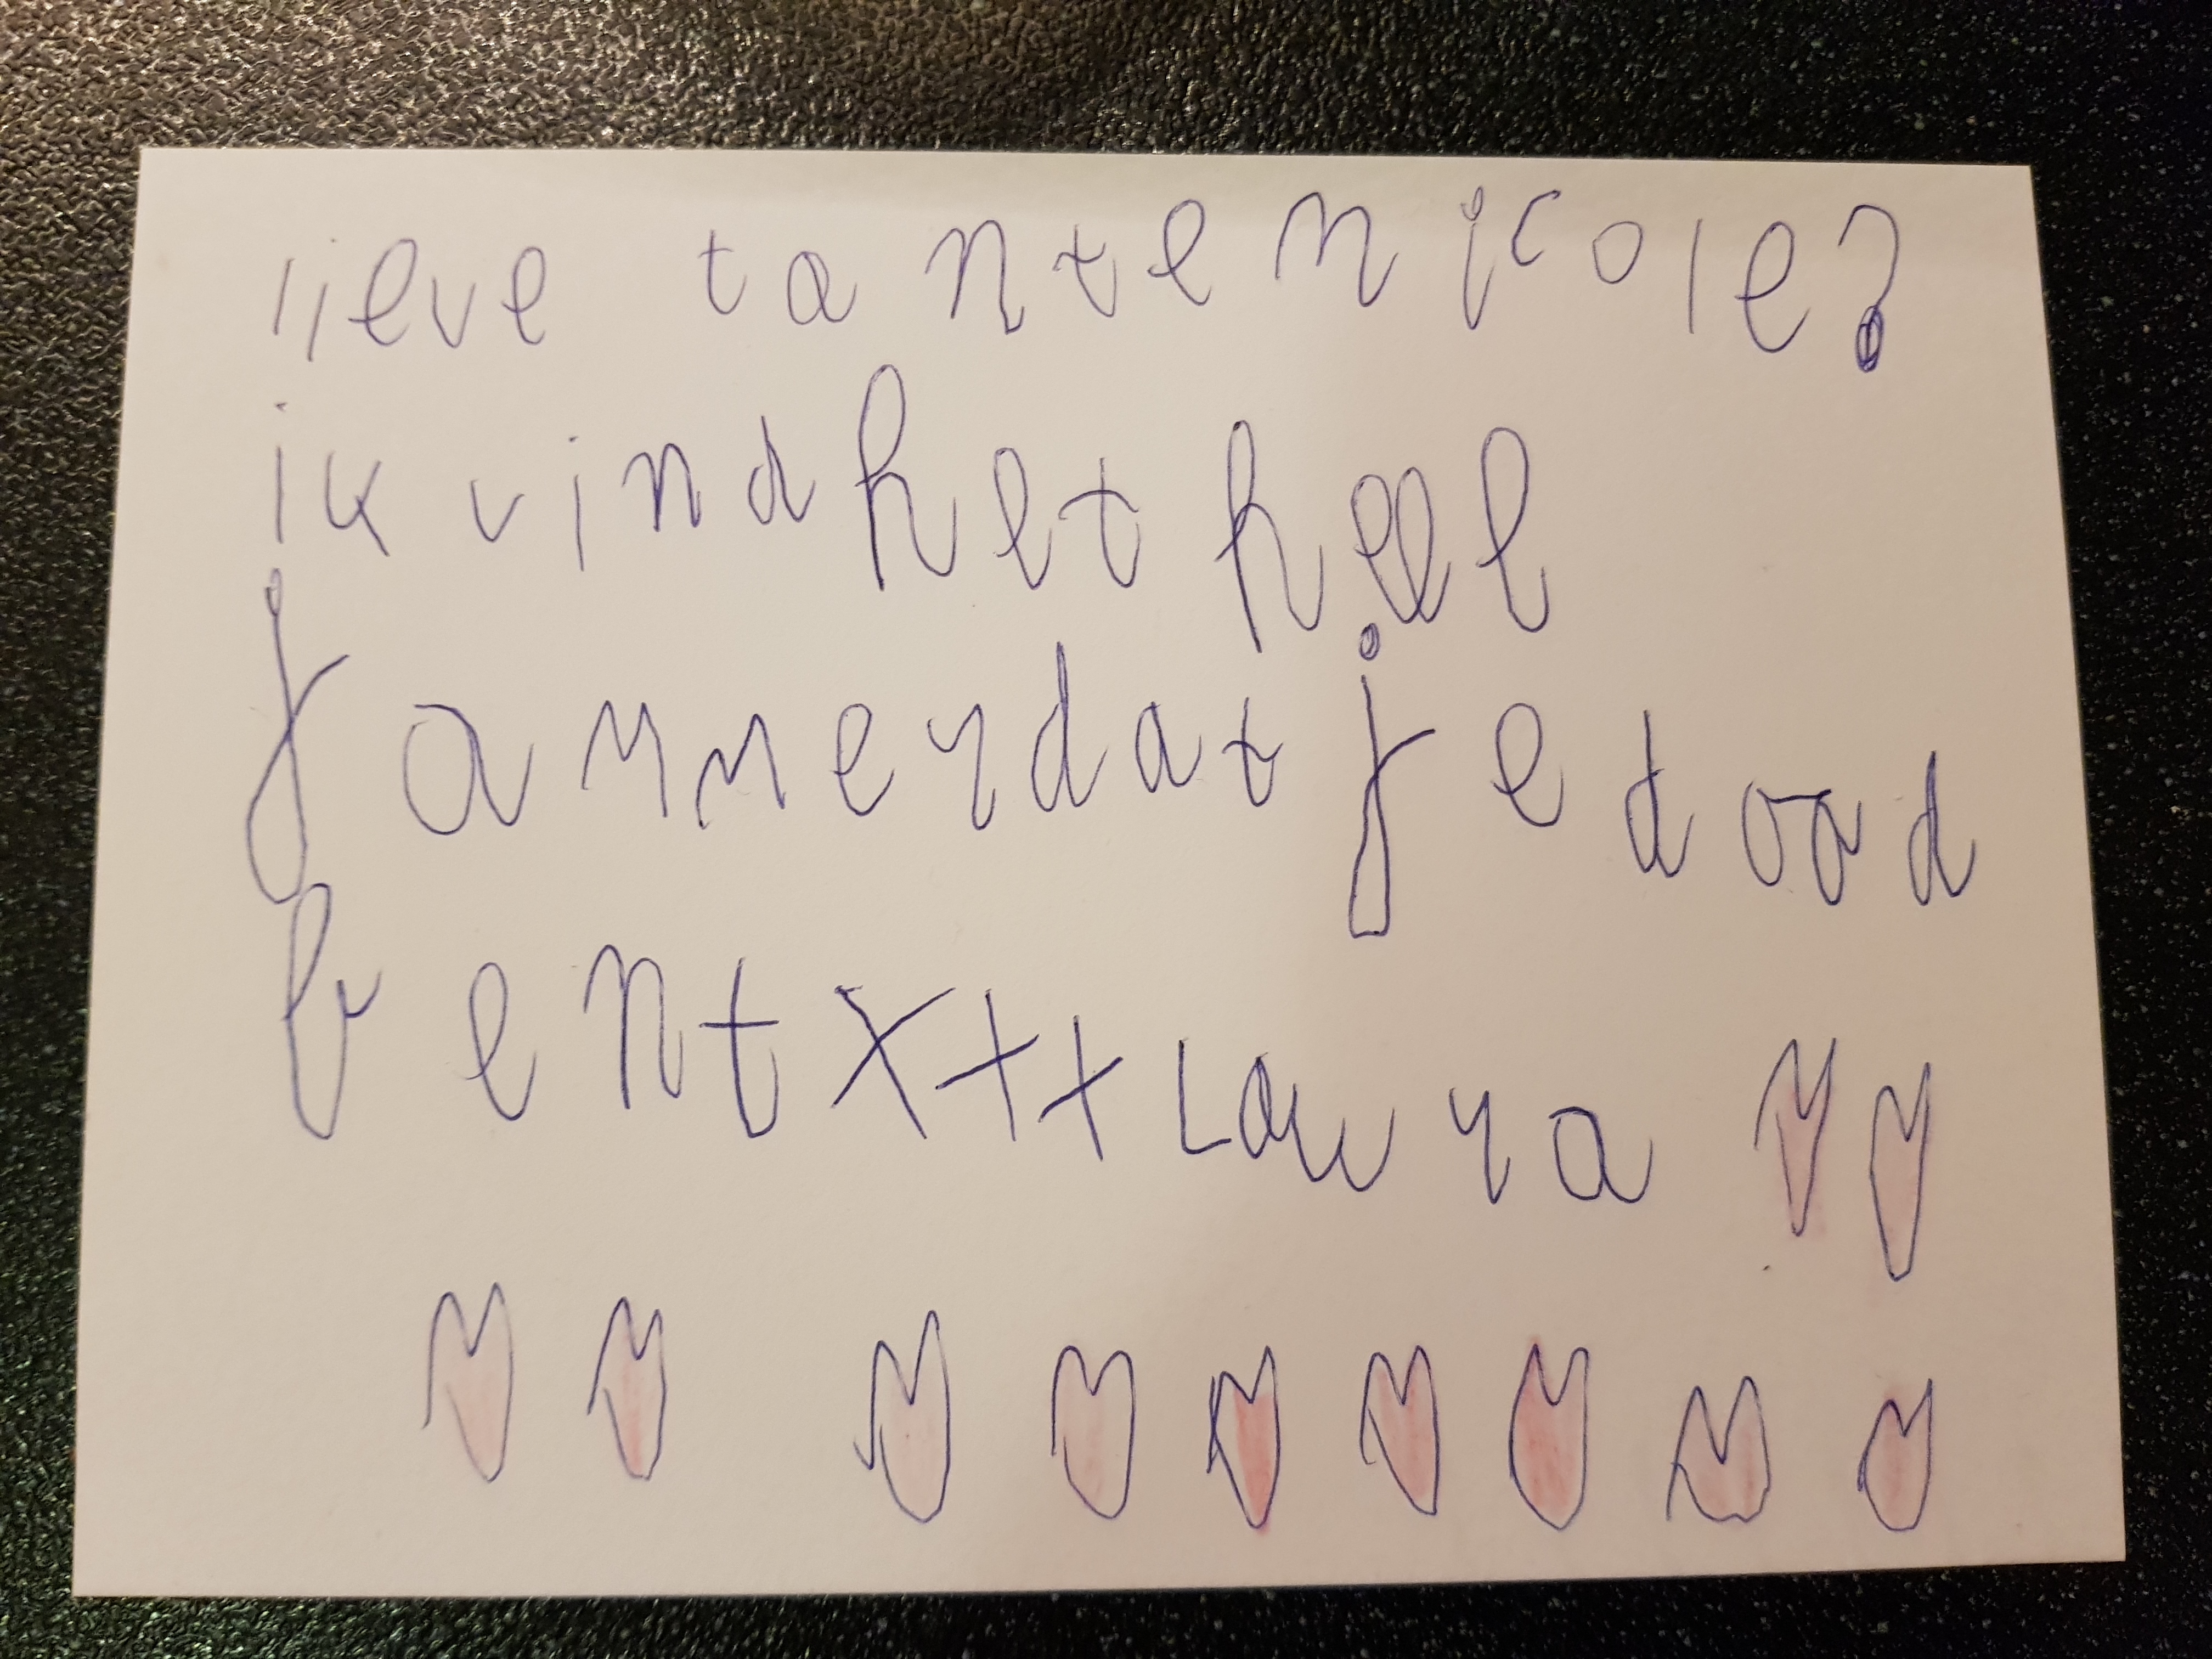 lieve tante nicole?
ik vind het heel
jammer dat je dood
bent xxx Laura